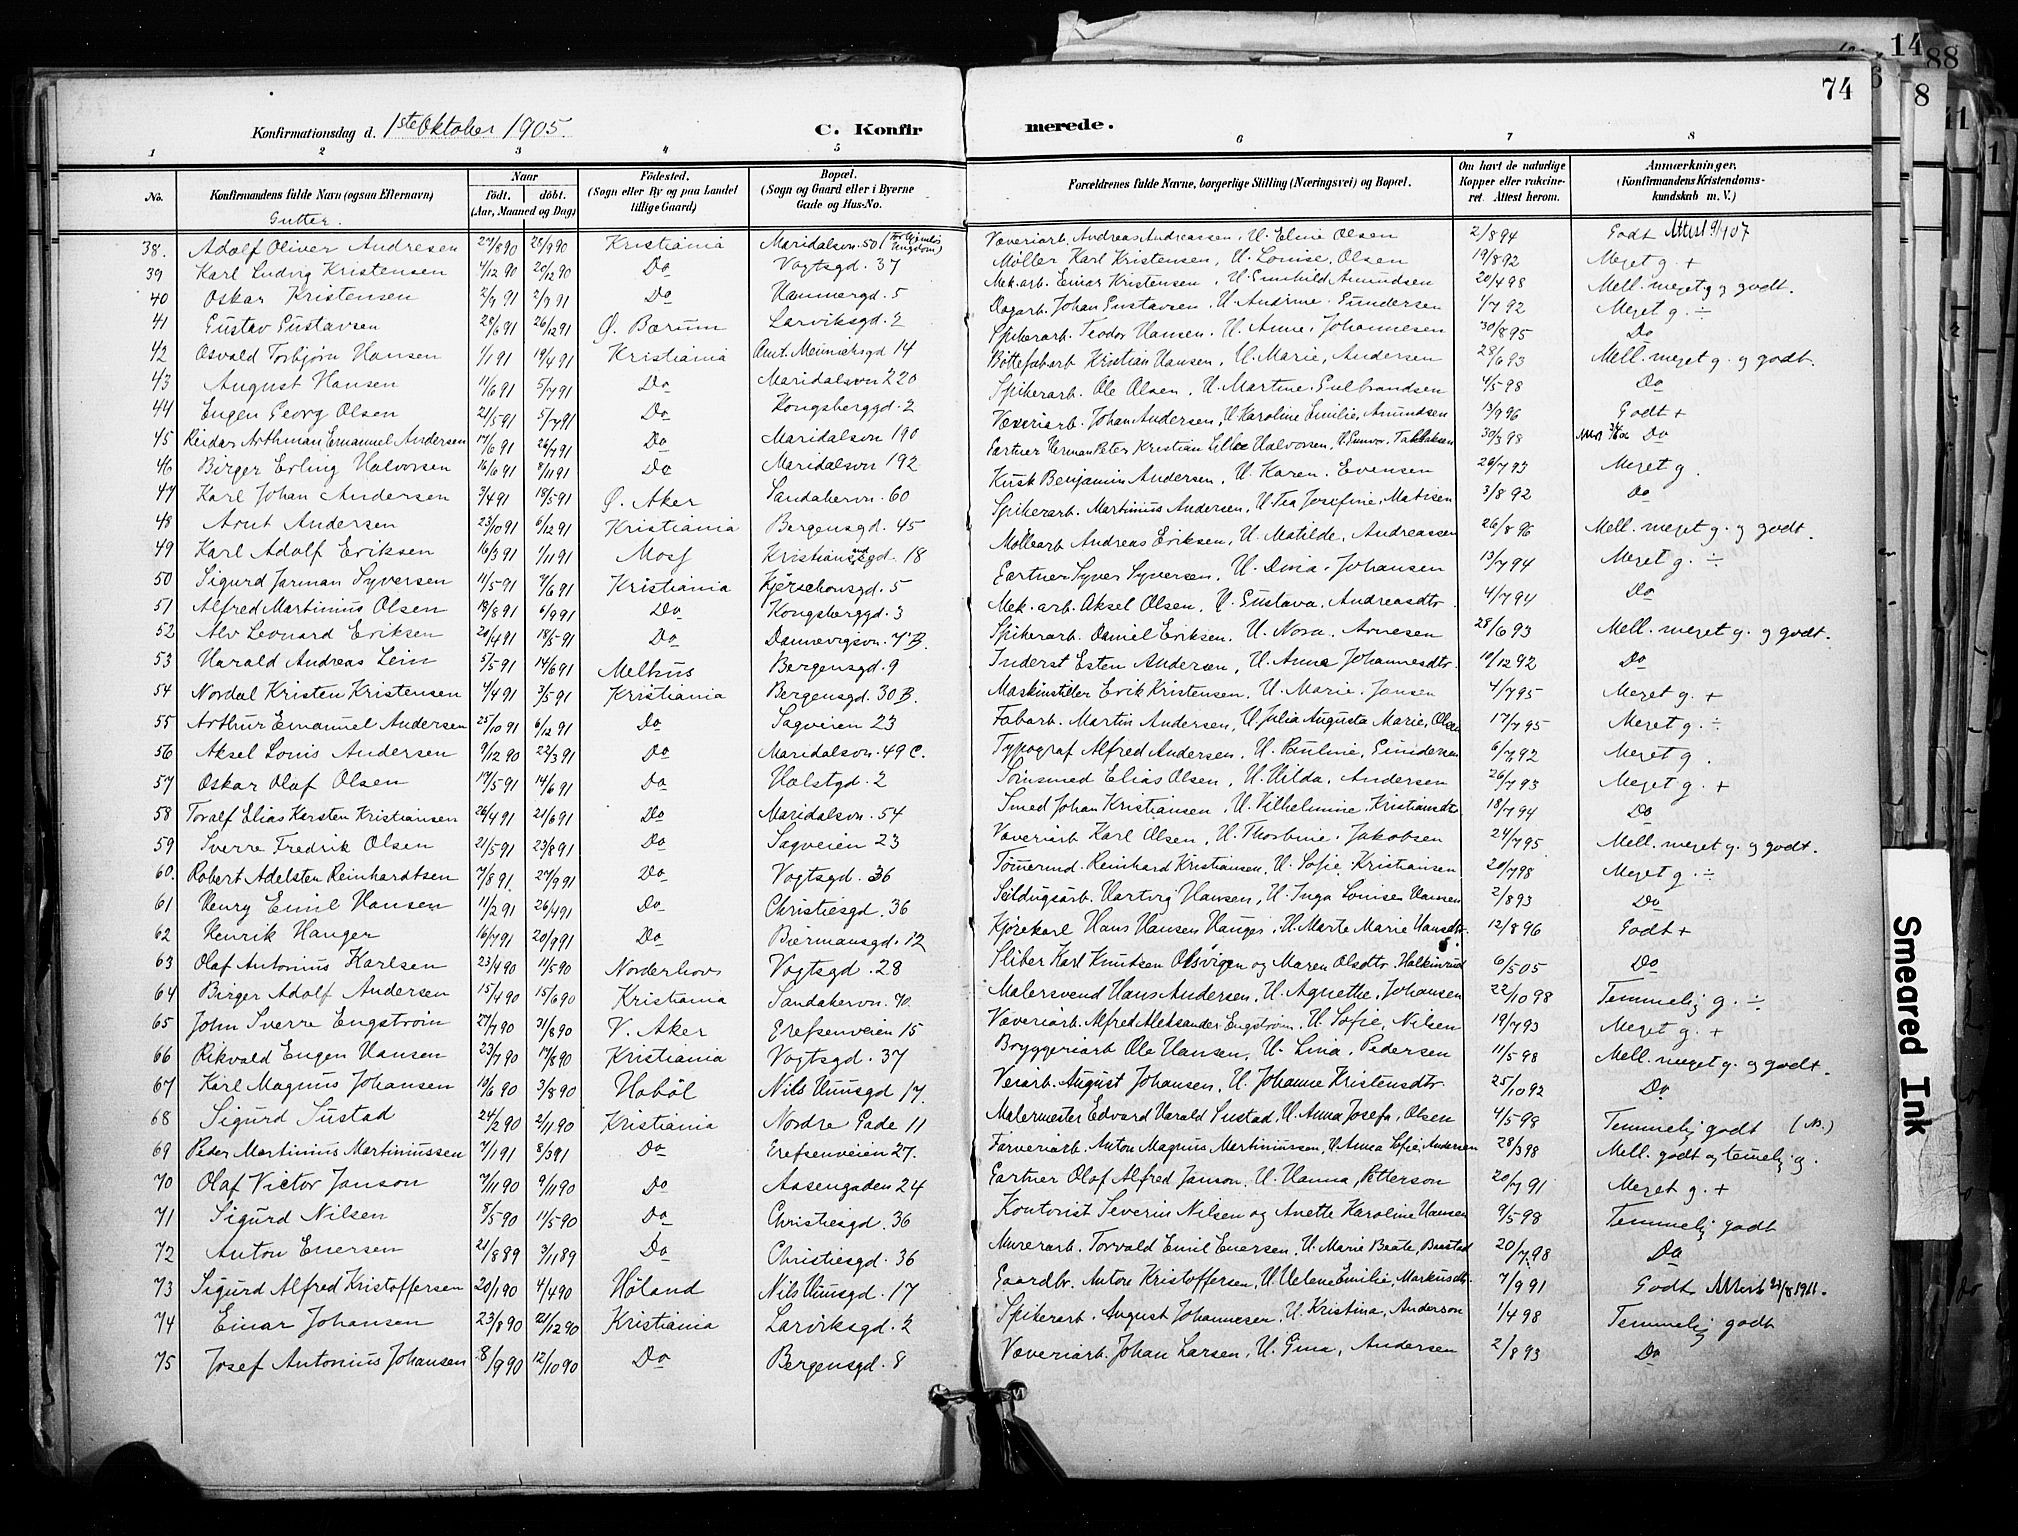 14
88
74
6
8
11
1
Konfirmationsdag d. 1ste Oktober 1905. C. Konfir merede.
1 2 3 4 5 6 7 8
No. Konfirmandens fulde Navn (ogsaa Efternavn) Naar Födt. döbt. (Aar, Maaned og Dag) Födested. (Sogn eller By og paa Landet tillige Gaard) Bopæl. (Sogn og Gaard eller i Byerne Gade og Hus-No. Forældrenes fulde Navne, borgerlige Stilling (Næringsvei) og Bopæl. Om havt de naturlige Kopper eller vaccineret. Attest herom. Anmærkninger. (Konfirmandens Kristendomskundskab m. V.)
Gutter.
38. Adolf Oliver Andresen 27/8 90 28/9 90 Kristiania Maridalsvn. 50 Væveriarb. Andreas Andreassen, H. Eline Olsen 2/8 94 Godt Attest 9/1 07
39 Karl Ludvig Kristensen 4/12 90 26/12 90 Do Vogtsgd. 37 Møller Karl Kristensen, H. Louise, Olsen 19/8 92 Meget g. +
40 Oskar Kristensen 2/7 91 2/9 91 Do Hammergd. 5 Mek. arb. Einar Kristensen, H. Gunhild Amundsen 20/4 98 Mell. meget g. og godt.
41 Gustav Gustavsen 28/6 91 26/12 91 Ø. Bærum Larviksgd. 2 Dagarb. Johan Gustavsen, H. Andrine. Gundersen 4/7 92 Meget g. ÷
42 Osvald Torbjørn Hansen 1/1 91 19/4 91 Kristiania Amt. Meinichsgd 14 Spikerarb. Teodor Hansen. H. Anne. Johannesen 30/8 95 Do
43 August Hansen 11/6 91 5/7 91 Do Maridalsvn 220 Böttefabarb Kristian Hansen, H. Marie, Andersen 28/6 93 Mell. meget g. og godt.
44 Eugen Georg Olsen 21/5 91 5/7 91 Do Kongsberggd. 2 Spikerarb. Ole Olsen, H. Martine. Gulbrandsen 4/5 98 Do
45 Reidar Arthman Emanuel Andersen 17/6 91 26/7 91 Do Maridalsvn 190 Væveriarb. Johan Andersen, H. Karoline Emilie, Amundsen 13/9 96 Godt +
46 Birger Erling Halvorsen 16/6 91 8/11 91 Do Maridalsvn 192 Gartner Herman Peter Kristian Halvorsen, H. Gunvor 30/8 98 Do
47 Karl Johan Andersen 3/4 91 18/5 91 Ø. Aker Sandakervn. 60 Kusk Benjamin Andersen, H. Karen. Evensen 26/7 93 Meget g.
48 Arnt Andersen 23/10 91 6/12 91 Kristiania Bergensgd. 45 Spikerarb. Martinius Andersen, H. Tea Josefine, Matisen 3/8 92 Do
49 Karl Adolf Eriksen 16/3 91 1/11 91 Moss Kristiansundsgd. 18 Möllearb Andreas Eriksen, H. Matilde, Andreassen 26/8 96 Mell. meget g. og godt.
50 Sigurd Jarman Syversen 11/5 91 7/6 91 Kristiania Kjerschousgd. 5 Gartner Syver Syversen, H. Dina. Johansen 13/7 94 Meget g. ÷
51 Alfred Martinius Olsen 18/8 91 6/9 91 Do Kongsberggd. 3 Mek. arb. Aksel Olsen, H. Gustava, Andreasdtr. 4/7 94 Do
52 Alv Leonard Eriksen 20/4 91 18/5 91 Do Dannevigsvn. 7 B. Spikerarb. Daniel Eriksen. H. Nora. Arnesen 28/6 93 Mell. meget g. og godt.
53 Harald Andreas Lein 5/5 91 14/6 91 Melhus Bergensgd. 9 Inderst Esten Andersen, H. Anne Johannesdtr. 10/12 92 Do
54 Nordal Kristen Kristensen 4/4 91 3/5 91 Kristiania Bergensgd. 30 B. Maskinstiller Erik Kristensen, H. Marie. Jansen 4/7 95 Meget g. +
55 Arthur Emanuel Andersen 25/10 91 6/12 91 Do Sagveien 23 Fabarb. Martin Andersen, H. Julia Augusta Marie, Olsen 17/7 95 Meget g. ÷
56 Aksel Louis Andersen 9/12 90 22/3 91 Do Maridalsvn. 49 C. Typograf Alfred Andersen. H. Pauline, Gundersen 6/7 92 Meget g.
57 Oskar Olaf Olsen 17/5 91 14/6 91 Do Holstgd. 2 Elias Olsen, H. Hilda, Andersen 26/7 93 Meget g. +
58 Toralf Elias Karsten Kristiansen 26/4 91 21/6 91 Do Maridalsvn. 54 Smed Johan Kristiansen, H. Vilhelmine. Kristiansdtr 18/7 94 Do
59 Sverre Fredrik Olsen 21/5 91 23/8 91 Do Sagveien 23 Væveriarb Karl Olsen, H. Thorbine. Jakobsen 24/7 95 Mell. meget g. og godt.
60. Robert Adelsten Reinhardtsen 7/8 91. 27/9 91 Do Vogtsgd. 36 Tömermd. Reinhard Kristiansen, H. Sofie. Kristiansen 20/7 98 Meget g. ÷
61 Henry Emil Hansen 11/2 91 26/4 91 Do Christiesgd. 36 Seildugsarb. Hartvig Hansen, H. Inga Louise Hansen 2/8 93 Do
62 Henrik Hanger 16/7 91 20/9 91 Do Biermansgd. 12 Kjørekarl Hans Hansen Hanger, H. Marte Marie Hansdtr. 12/8 96 Godt +
63 Olaf Antonius Karlsen 23/4 90 11/5 90 Norderhov Vogtsgd. 28 Sliber Karl Knutsen og Maren Olsdtr. 6/5 05 Do
64 Birger Adolf Andersen 15/4 90 15/6 90 Kristiania Sandakervn. 70 Malersvend Hans Andersen, H. Agnethe, Johansen 22/10 98 Temmelig g. ÷
65 John Sverre Engström 27/7 90 31/8 90 V. Aker Grefsenveien 15 Væveriarb. Alfred Aleksander Engström. H. Sofie, Nilsen 19/7 93 Meget g. +
66 Rikvald Eugen Hansen 23/7 90 17/8 90 Kristiania Vogtsgd. 37 Bryggeriarb Ole Hansen, H. Lina, Pedersen 11/5 98 Mell. meget g. og godt.
67 Karl Magnus Johansen 10/6 90 3/8 90 Haböl Nils Huusgd 17. Veiarb. August Johansen, H. Johanne Kristensdtr 25/10 92 Do
68 Sigurd Sustad 24/2 90 2/11 90 Kristiania Nordre Gade 11 Malermester Edvard Harald Sustad, H. Anna Josefa, Olsen 4/5 98 Temmelig godt
69 Peder Martinius Martiniussen 7/1 91 8/3 91 Do Grefsenveien 27. Farveriarb. Anton Magnus Martiniussen, H. Anna Sofie, Andersen 28/3 98 Mell. godt og temelig g.
70 Olaf Victor Janson 7/11 90 9/11 90 Do Aasengaden 24 Gartner Olaf Alfred Janson, H. Hanna, Petterson 20/7 91 Meget g. +
71 Sigurd Nilsen 8/5 90 11/5 90 Do Christiesgd. 36 Kontorist Severin Nilsen og Anette Karoline Hansen 9/5 98 Temmelig godt
72 Anton Enersen 21/8 89 3/11 89 Do Christiesgd. 36 Murerarb. Torvald Emil Enersen, H. Marie Beate, Baastad 20/7 98 Do
73 Sigurd Alfred Kristoffersen 20/1 90 4/4 90 Höland Nils Huusgd. 17 Gaardbr. Anton Kristoffersen, H. Helene Emilie, Markusdtr. 7/9 91 Godt. Attest 23/8 1911.
74 Einar Johansen 23/8 90 26/12 90 Kristiania Larviksgd. 2 Spikerarb. August Johannesen, H. Kristina, Anderson 1/4 98 Temmelig godt
75 Josef Antonius Johansen 8/9 90 12/10 90 Do Bergensgd. 8 Væveriarb. Johan Larsen, H. Gina, Andersen 2/8 93 Do
Smeared Ink